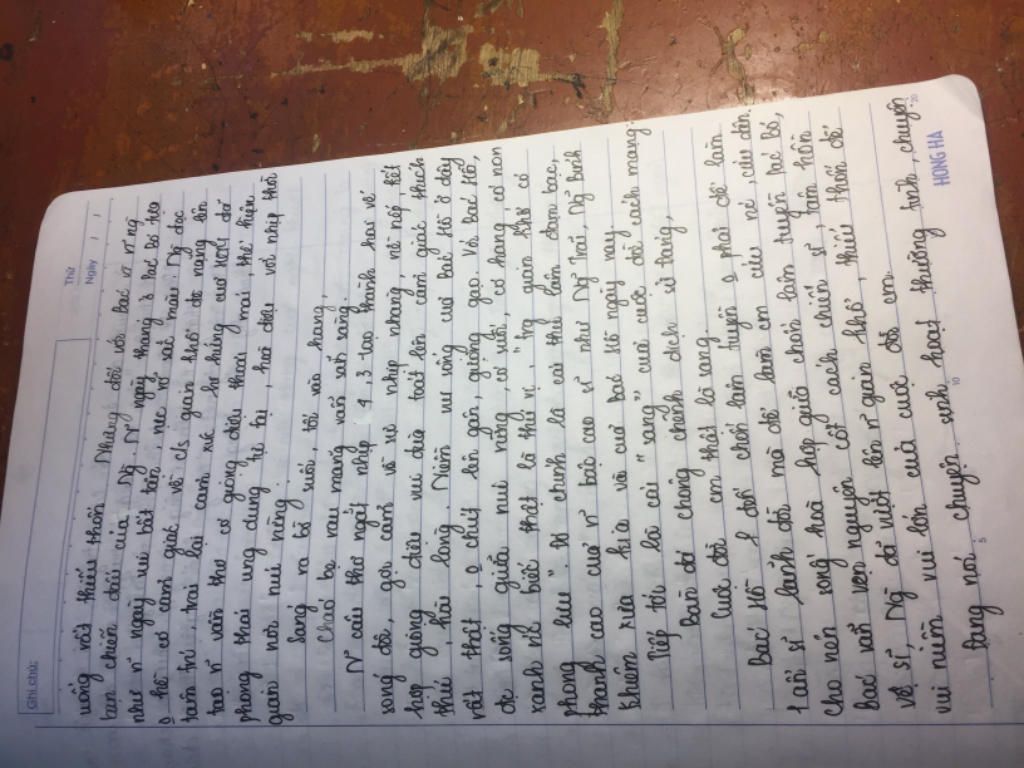 Ghi chú:
Thứ
Ngày / /
uống vật thiếu thốn. Nhưng đối với Bác n~ ng
bạn chiến đấu của Ng. N~ ngày tháng ở Pác Bó đẹp
như n~ ngày vui bất tận,
o hề có cảm giác về c/s gian khổ đè nặng lên
tâm trí trái lại cảm xúc hào hứng của Ng đã
tạo n~ vần thơ có giọng điệu thoải mái, thể hiện
phong thái ung dung tự tại, hoà điệu với nhịp thở
giản nơi núi rừng:
Sáng ra bờ suối, tối vào hang,
Cháo bẹ rau măng vẫn sẵn sàng.
N~ câu thơ ngắt nhịp 4, 3 tạo thành hai vế
sóng đôi, gợi cảm về sự nhịp nhàng, nề nếp, kết
hợp giọng điệu vui đùa toát lên cảm giác thích
thú, hài lòng. Niềm vui sống của Bác Hồ ở đây
rất thật, o chút lên gân, gượng gạo. Với Bác Hồ,
đc sống giữa núi rừng, có suối, có hang, có non
xanh nc biếc thật là thú vị. "Trg quân khí có
phong lưu". Đó chính là cái thiếu làm đam bạc,
thanh cao của n~ bậc cao sĩ như Ng Trãi, Ng Bỉnh
Khiêm xưa kia và của Bác Hồ ngày nay.
Tiếp tới là cái "sang" của cuộc đời cách mạng:
Bàn đá chông chênh dịch sử Đảng,
Cuộc đời cm thật là sang.
Bác Hồ đôi chơi lâm tuyền phải để làm
1 ẩn sĩ lánh đời mà để làm cm cứu nc, cứu dân.
Cho nên song hoà hợp giữa chơi lâm tuyền Pác Bó,
Bác vẫn vẹn nguyên cốt cách chiến sĩ, tâm hồn
vệ sĩ, Ng đã vượt lên n~ gian khổ, thiếu thốn để
vui niềm vui lớn của cuộc đời cm.
Đang nói chuyện sinh hoạt thường tình, chuyện
5
10
20
HONG HA